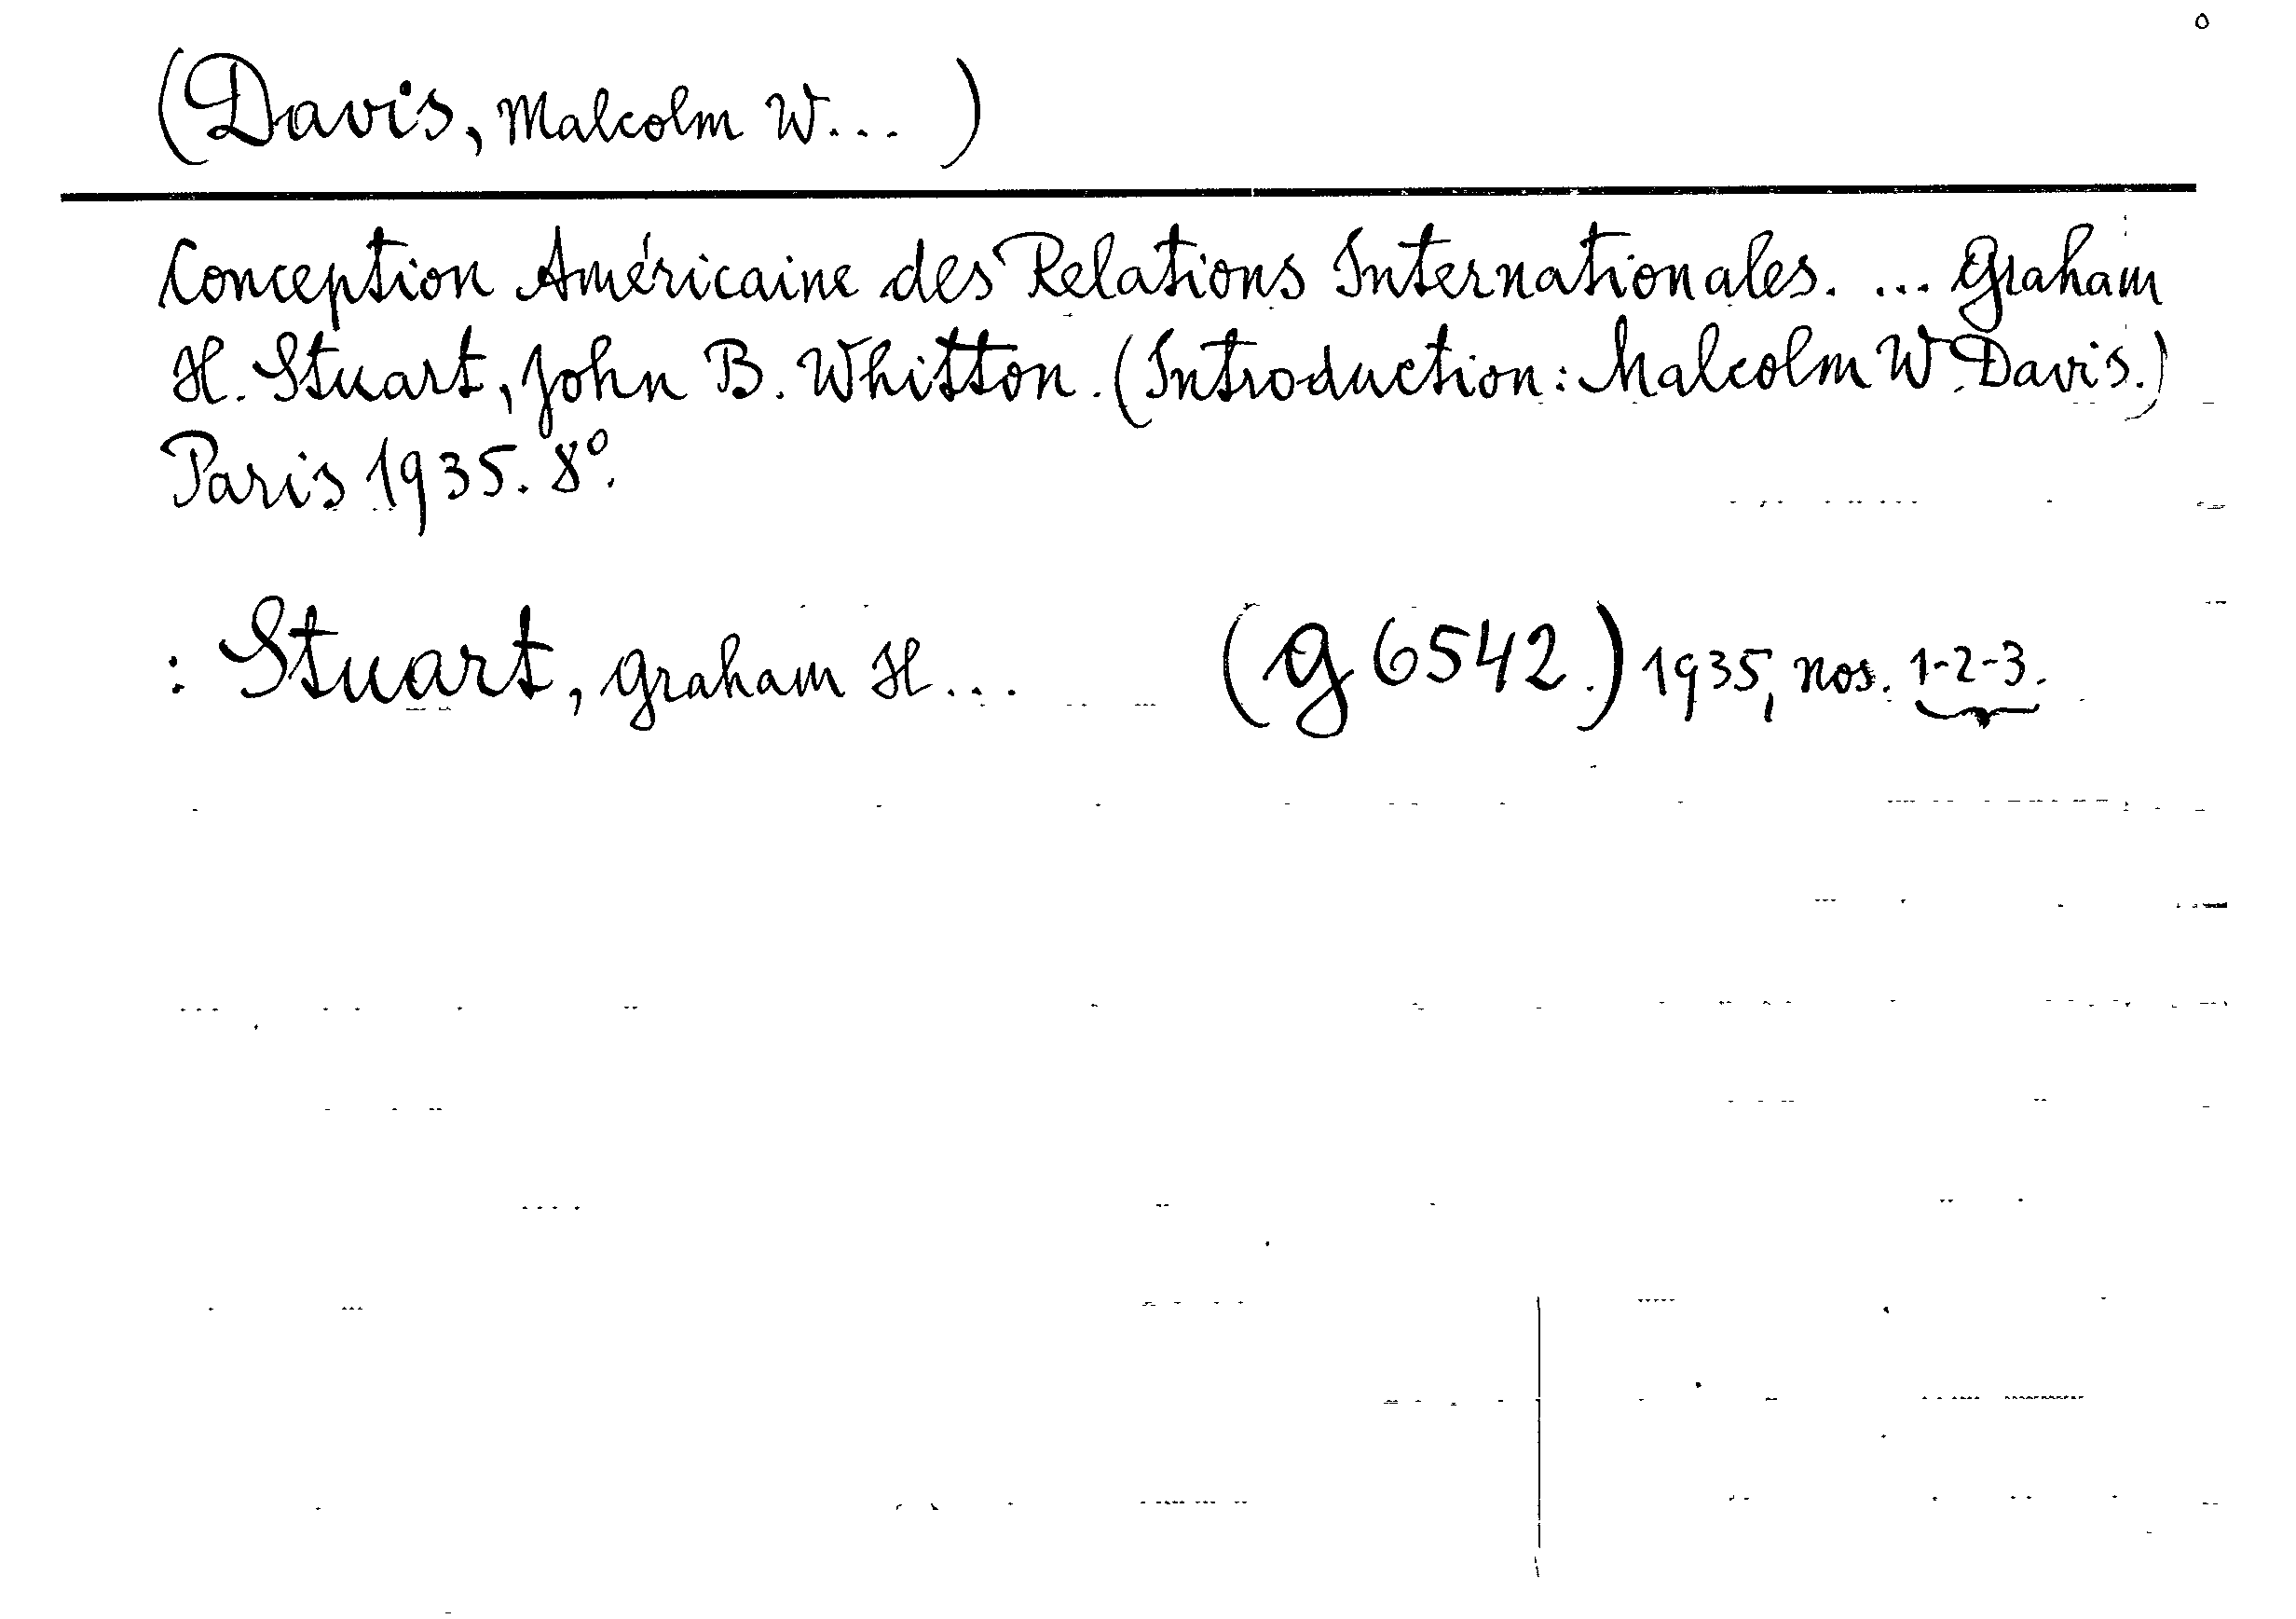 (Davis, Malcolm W... )
Conception Américaine des Relations Internationales. ... Graham
H. Stuart, John B. Whitton. (Introduction: Malcolm W. Davis.)
Paris 1935. 8°.
: Stuart, Graham H... (g 6542.) 1935, nos. 1-2-3.